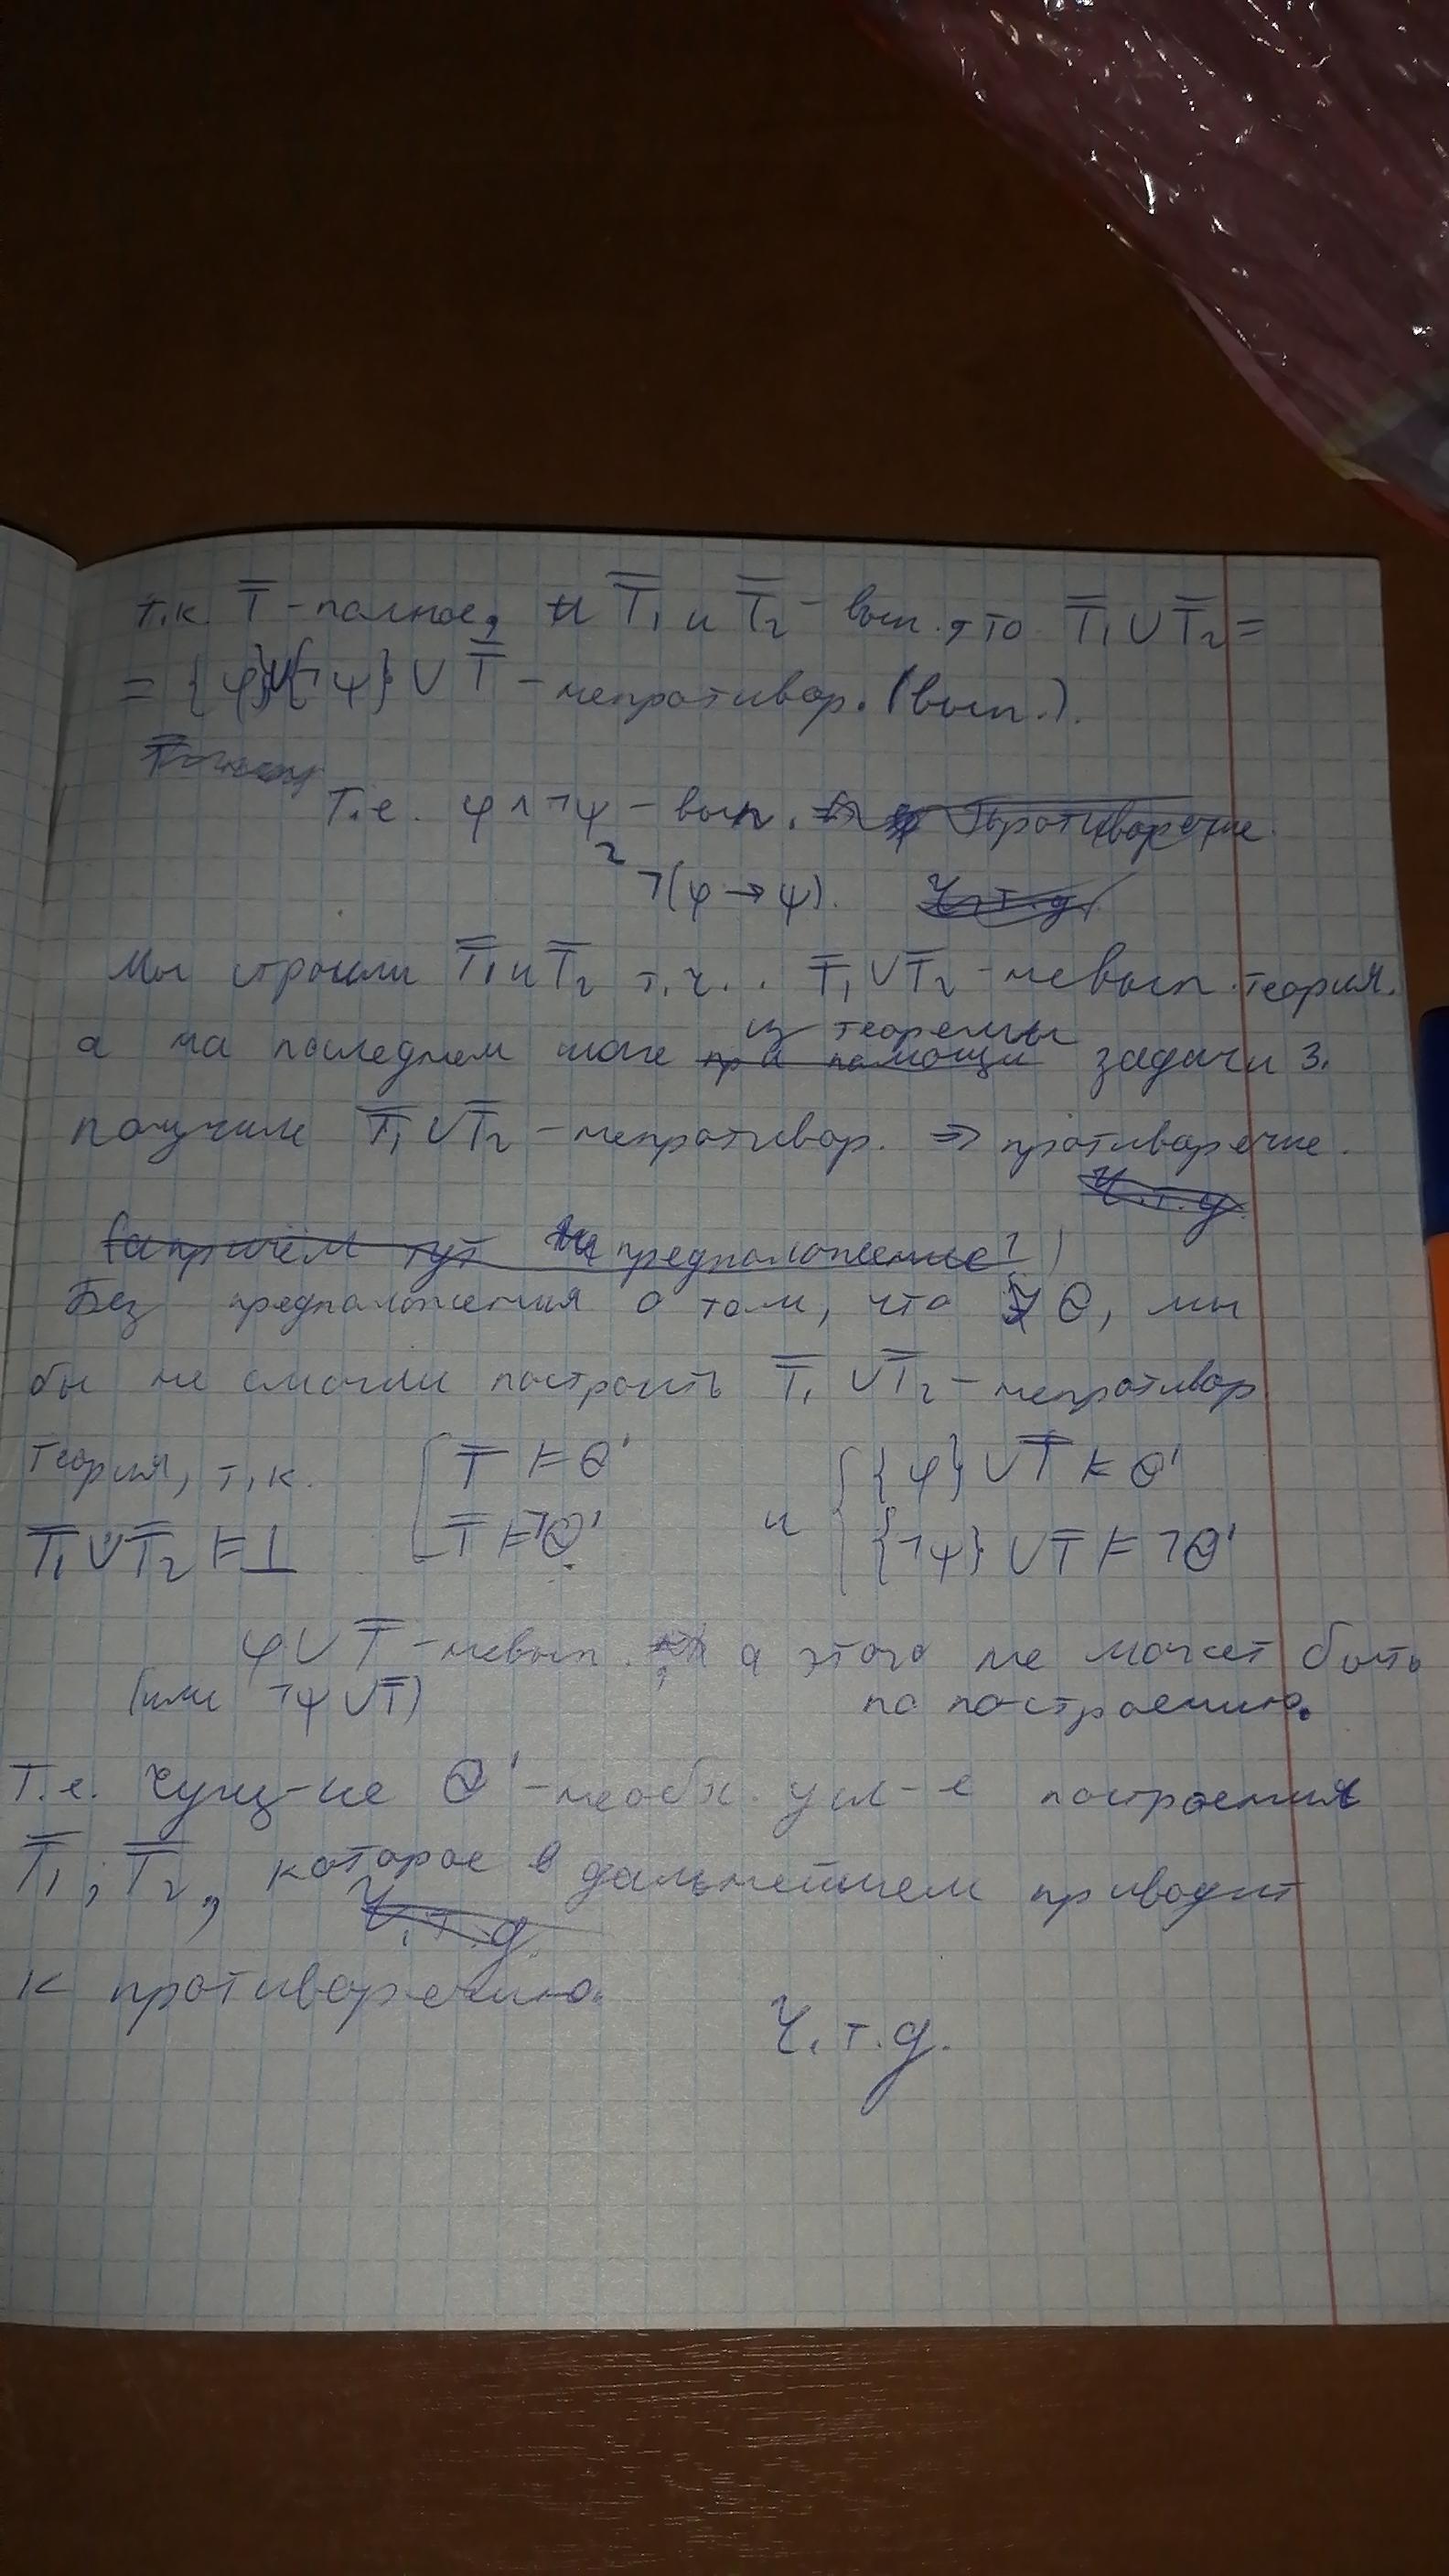 т.к. T̿ - полное, и T̿₁ и T̿₂ - вып., то T̿₁ ∪ T̿₂ =
= {φ}∪{¬ψ} ∪ T̿ - непротивор. (вып.).
Т.е. φ ∧ ¬ψ - вып. Противоречие.
¬(φ → ψ). Ч.т.д.
Мы строили T̿₁ и T̿₂ т.ч. T̿₁ ∪ T̿₂ - невып. теория.
из теоремы
а на последнем шаге при помощи задачи 3.
получили T̿₁ ∪ T̿₂ - непротивор. ⇒ противоречие.
Ч.т.д.
(а причём тут предположение?)
Без предположения о том, что ∄ Θ, мы
бы не смогли построить T̿₁ ∪ T̿₂ - непротивор
теория, т.к. [ T̿ ⊨ Θ' и { {φ} ∪ T̿ ⊨ Θ'
T̿₁ ∪ T̿₂ ⊨ ⊥ T̿ ⊨ ¬Θ' {¬ψ} ∪ T̿ ⊨ ¬Θ'
φ ∪ T̿ - невып., а этого не может быть
(или ¬ψ ∪ T̿) по построению.
Т.е. сущ-ие Θ' - необх. усл-е построения
T̿₁, T̿₂, которое в дальнейшем приводит
Ч.т.д.
к противоречию.
Ч.т.д.